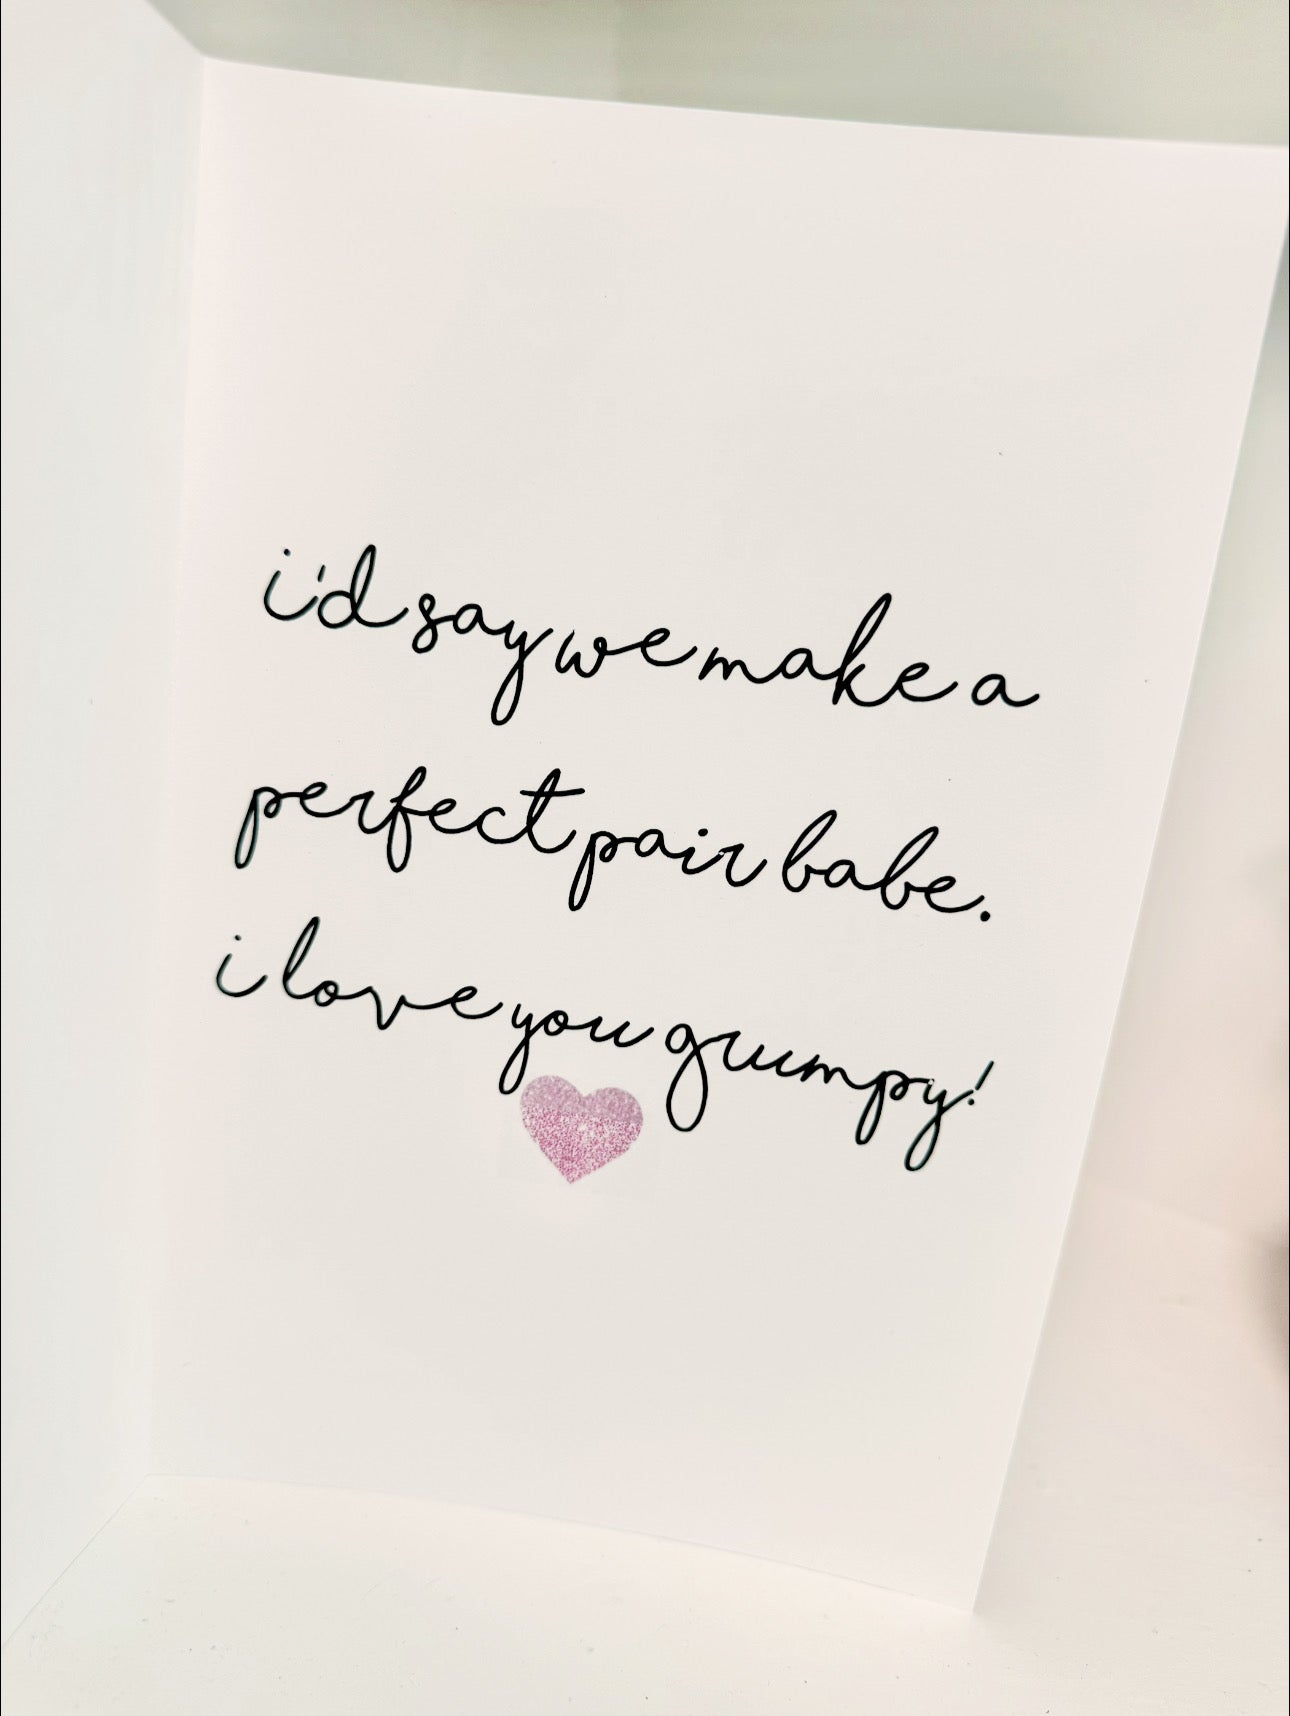 i'd say we make a
perfect pair babe.
i love you grumpy!